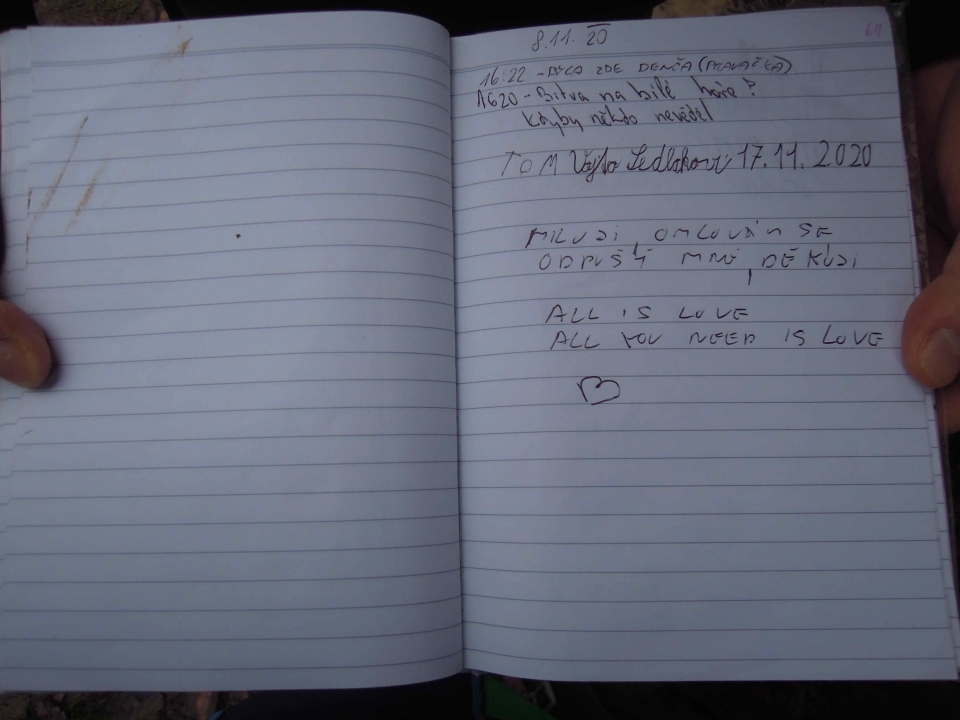 8.11.20
64
16:22 - BYLA ZDE DENČA (PRAVAČKA)
1620 - Bitva na bílé hoře?
Kdyby někdo nevěděl
TOM Vojta Sedlákovi 17.11.2020
MILUJI, OMLOUVÁM SE
ODPUSŤ MNĚ, DĚKUJI
ALL IS LOVE
ALL YOU NEED IS LOVE